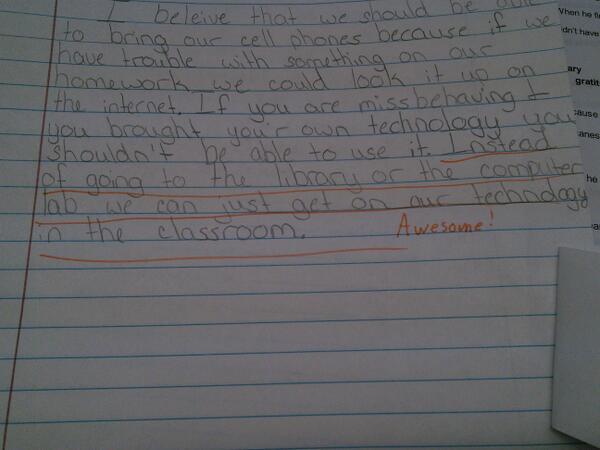 I beleive that we should be able
to bring our cell phones because if we
have trouble with something on our
homework we could look it up on
the internet. If you are missbehaving &
you brought you'r own technology you
shouldn't be able to use it. Instead
of going to the library or the computer
lab we can just get on our technology
in the classroom.
Awesome!
When he
idn't have
ary
gratit
cause
anes
he